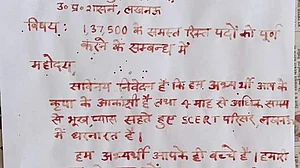 उ० प्र० शासन, लखनऊ
विषय: 1,37,500 के समस्त रिक्त पदों को पूर्ण
करने के सम्बन्ध में
महोदय,
सविनय निवेदन है कि हम अभ्यर्थी आप के
कृपा के आकांक्षी हैं तथा 4 माह से अधिक समय
से भूख, प्यास सहते हुए SCERT परिसर, लखनऊ
में धरनारत हैं।
हम अभ्यर्थी आपके ही बच्चे हैं। हमारी